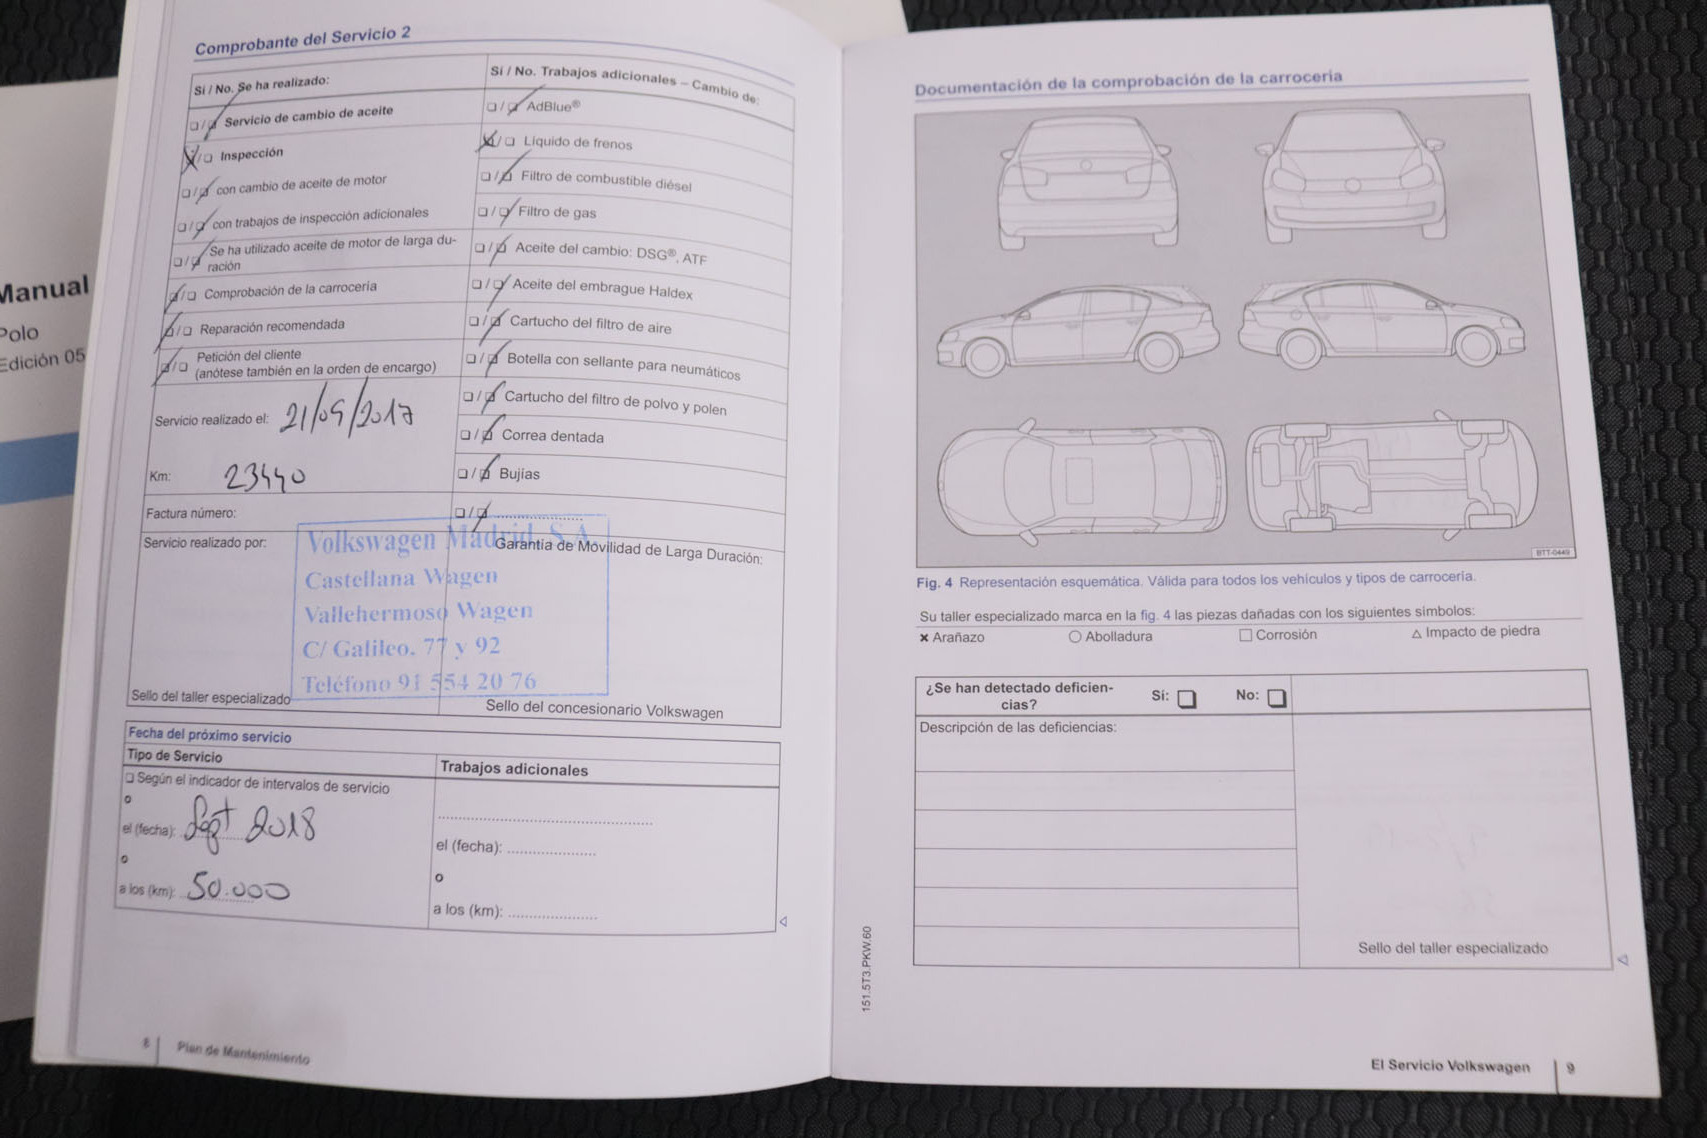 Manual
Polo
Edición 05
Comprobante del Servicio 2
Sí / No. Se ha realizado:
❏ / ❏ Servicio de cambio de aceite
❏ / ❏ Inspección
❏ / ❏ con cambio de aceite de motor
❏ / ❏ con trabajos de inspección adicionales
❏ / ❏ Se ha utilizado aceite de motor de larga du-
ración
❏ / ❏ Comprobación de la carrocería
❏ / ❏ Reparación recomendada
❏ / ❏ Petición del cliente
(anótese también en la orden de encargo)
Servicio realizado el: 21/09/2017
Km: 23440
Factura número:
Servicio realizado por:
Sí / No. Trabajos adicionales – Cambio de:
❏ / ❏ AdBlue®
❏ / ❏ Líquido de frenos
❏ / ❏ Filtro de combustible diésel
❏ / ❏ Filtro de gas
❏ / ❏ Aceite del cambio: DSG®, ATF
❏ / ❏ Aceite del embrague Haldex
❏ / ❏ Cartucho del filtro de aire
❏ / ❏ Botella con sellante para neumáticos
❏ / ❏ Cartucho del filtro de polvo y polen
❏ / ❏ Correa dentada
❏ / ❏ Bujías
❏ / ❏ ....................
Garantía de Movilidad de Larga Duración:
Volkswagen Madrid S.A.
Castellana Wagen
Vallehermoso Wagen
C/ Galileo. 77 y 92
Teléfono 91 554 20 76
Sello del taller especializado
Sello del concesionario Volkswagen
Fecha del próximo servicio
Tipo de Servicio
❏ Según el indicador de intervalos de servicio
o
el (fecha): Sept 2018
o
a los (km): 50.000
Trabajos adicionales
..................................................
el (fecha): ....................
o
a los (km): ....................
8 Plan de Mantenimiento
Documentación de la comprobación de la carrocería
BTT-0449
Fig. 4 Representación esquemática. Válida para todos los vehículos y tipos de carrocería.
Su taller especializado marca en la fig. 4 las piezas dañadas con los siguientes símbolos:
× Arañazo ○ Abolladura □ Corrosión △ Impacto de piedra
¿Se han detectado deficien-
cias?
Sí: ❏ No: ❏
Descripción de las deficiencias:
Sello del taller especializado
151.5T3.PKW.60
El Servicio Volkswagen 9